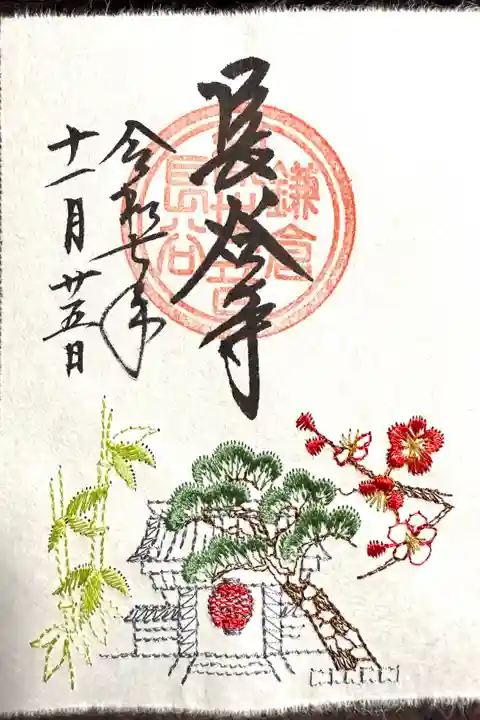 長谷寺
令和七年
十一月廿五日
鎌倉
長谷